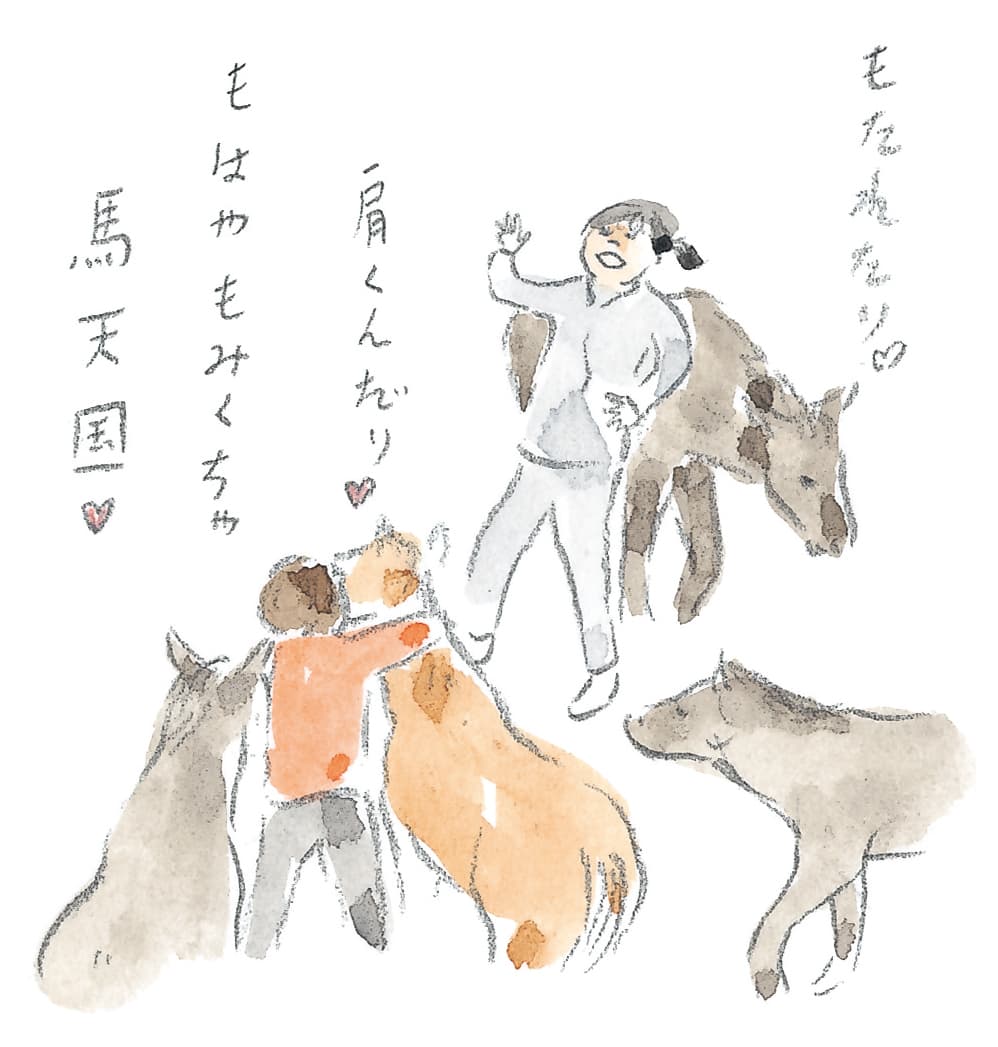 もたれたり♡
肩くんだり♥
もはやもみくちゃ
馬天国♥